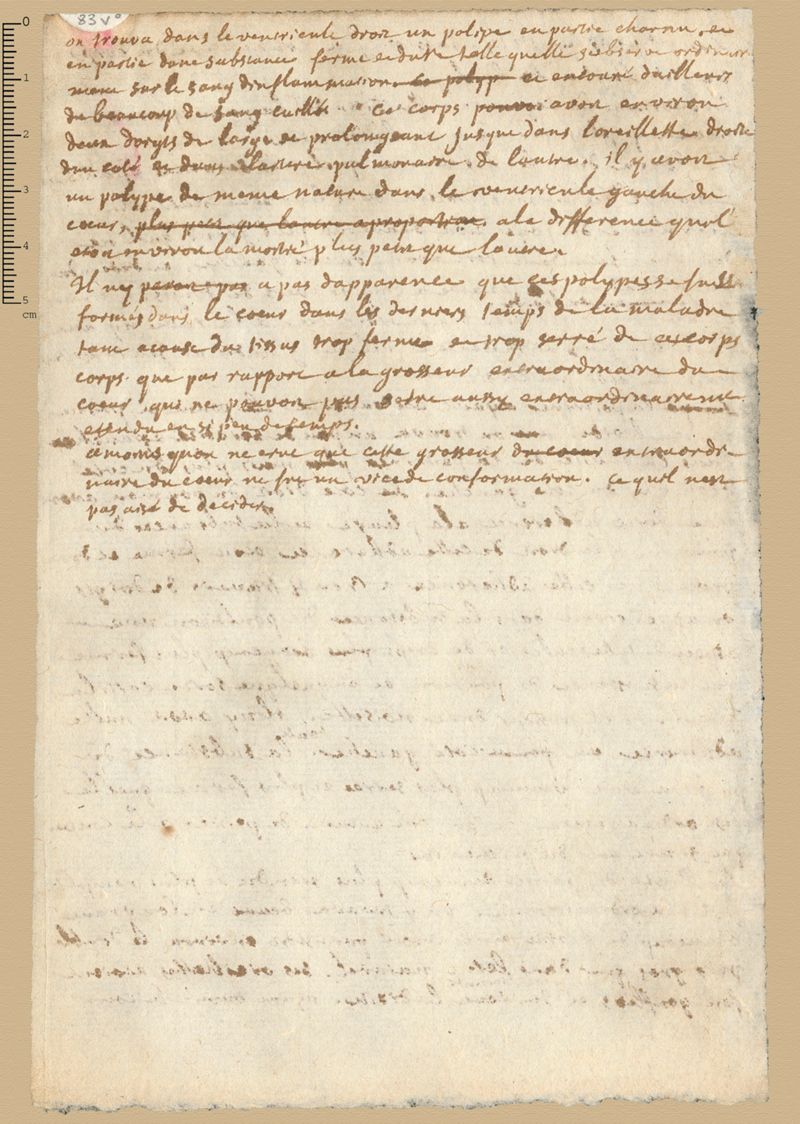 83 v°
on trouva dans le ventricule droit un polipe en partie charnu, et
en partie dune substance ferme et dure telle quelle sobserve ordinair
mene sur le sang dinflammation. ce polyp et entouré dailleurs
de beaucoup de sang caillé ce corps pouvoi avoit environ
deux doigts de large se prolongeant jusque dans loreillette droite
dun coté et dans lartere pulmonaire de lautre. il y avoit
un polype de meme nature dans le ventricule gauche du
coeur, plus petit que lautre a proportion. a la difference quil
etoit environ la moitié plus petit que lautre.
Il ny a pas dapparence que ces polypes se fuss
formés dans le coeur dans les derniers temps de la maladie
tant acause du tissus trop ferme et trop serré de ces corps
corps que par rapport a la grosseur extraordinaire du
coeur qui ne pouvoit pas setre aussy extraordinairement
etendu en si peu de temps.
amoins quon ne crut que cette grosseur du coeur extraordi
naire du coeur ne fut un vice de conformation. ce quil nest
pas aisé de decider.